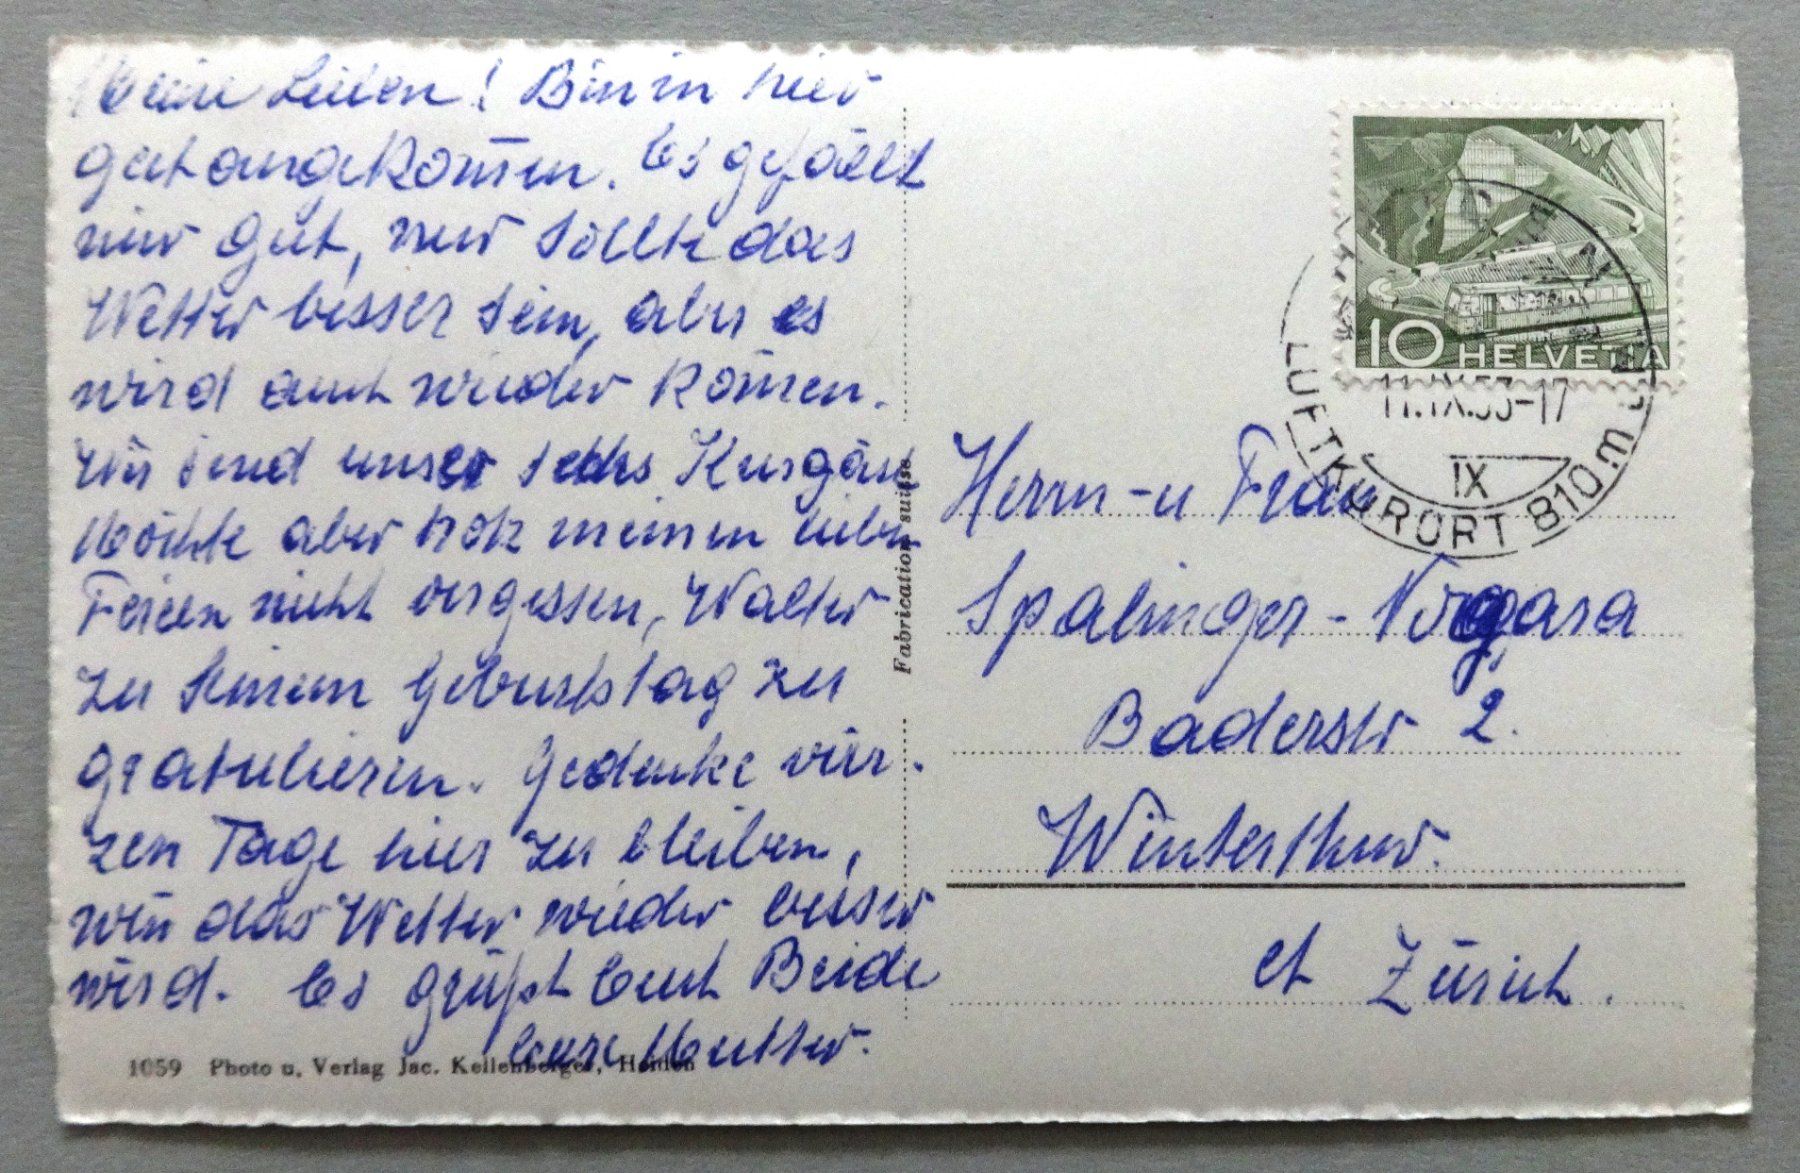 Meine Lieben! Bin in hier
gut angekom̄en. Es gefällt
mir gut, nur sollte das
Wetter besser sein, aber es
wird auch wieder kom̄en.
Wir sind unser sechs Kurgäste
Möchte aber trotz meinen lieben
Ferien nicht vergessen, Walter
zu seinem Geburtstag zu
gratulieren. Gedenke vier-
zen Tage hier zu bleiben,
wen̄ das Wetter wieder besser
wird. Es grüßt Euch Beide
Eure Mutter.
1059 Photo u. Verlag Jac. Kellenberger, Heiden
Fabrication suisse
10 HELVETIA
11.IX.53-17
IX
LUFTKURORT 810 m
Herrn - u Frau
Spalinger -
Baderstr 2.
Winterthur.
ct Zürich.